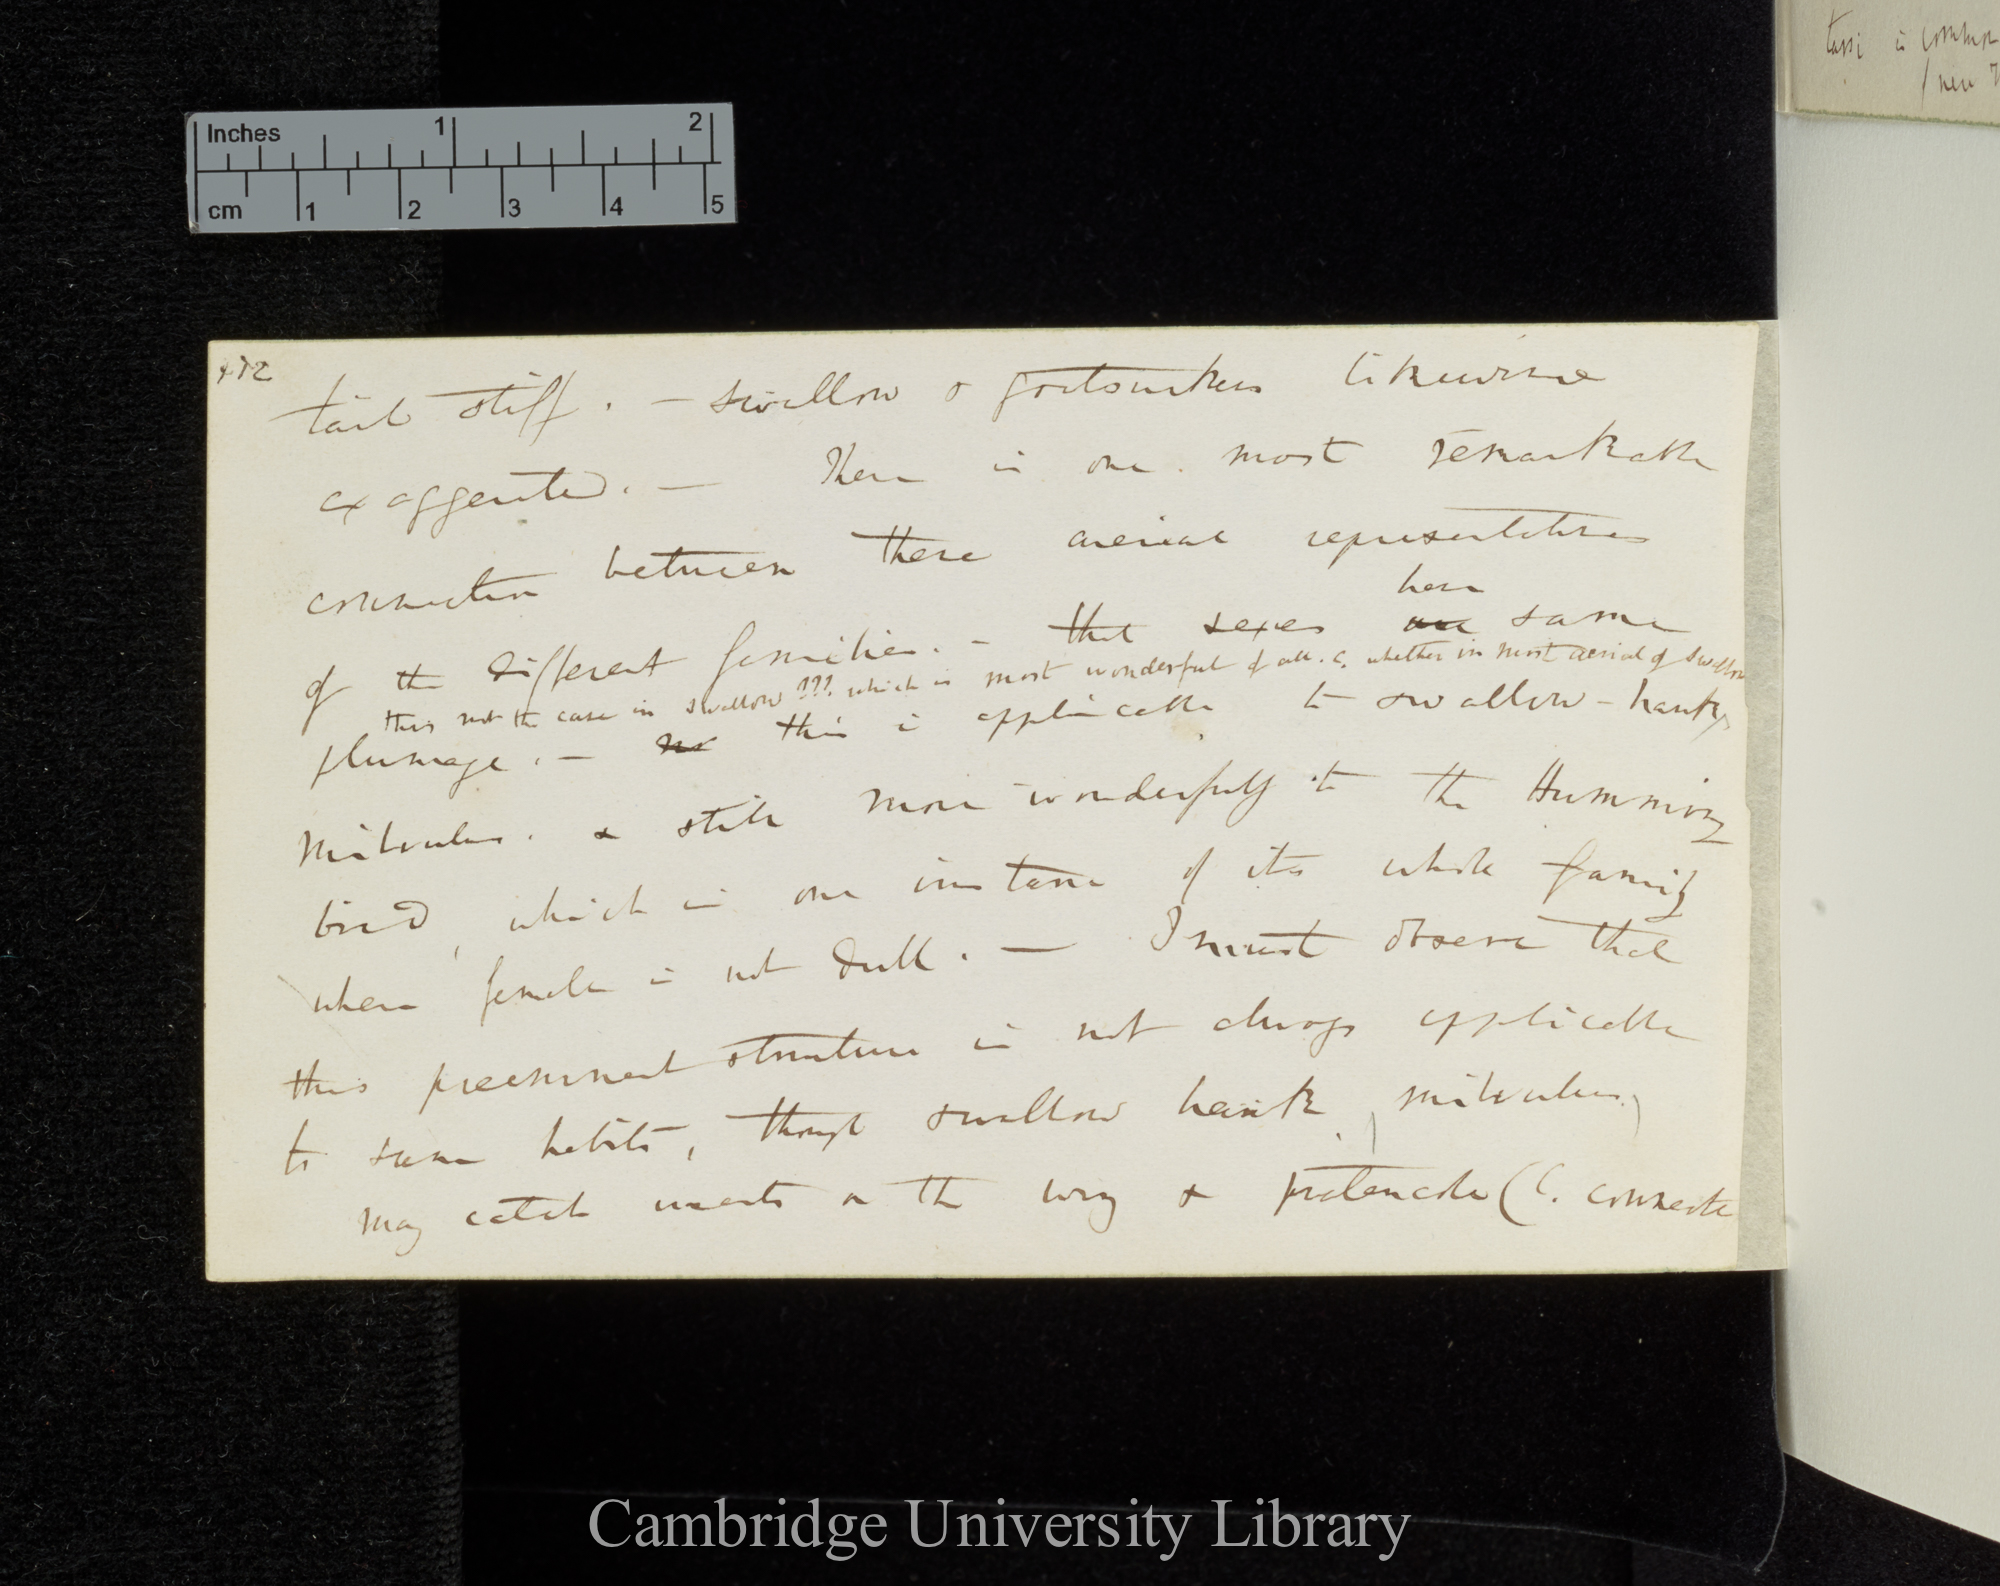 Inches 1 2
cm 1 2 3 4 5
tail stiff. — swallow & goatsuckers likewise
exaggerated. — There is one most remarkable
connection between these aerial representatives
have
of the different families. — that sexes are same
this not the case in swallow ??? which is most wonderful of all. C. whether in most aerial of Swallow
plumage. — no this is applicable to swallow-hawk,
Milvulus. & still more wonderfully to the Humming
bird, which is one instance of its whole family
where female is not dull. — I must observe that
this preeminent structure is not always applicable
to same habits, though swallow hawk, milvulus,
may catch insects on the wing & pratencola (C. connects
tassi is common
new
Cambridge University Library